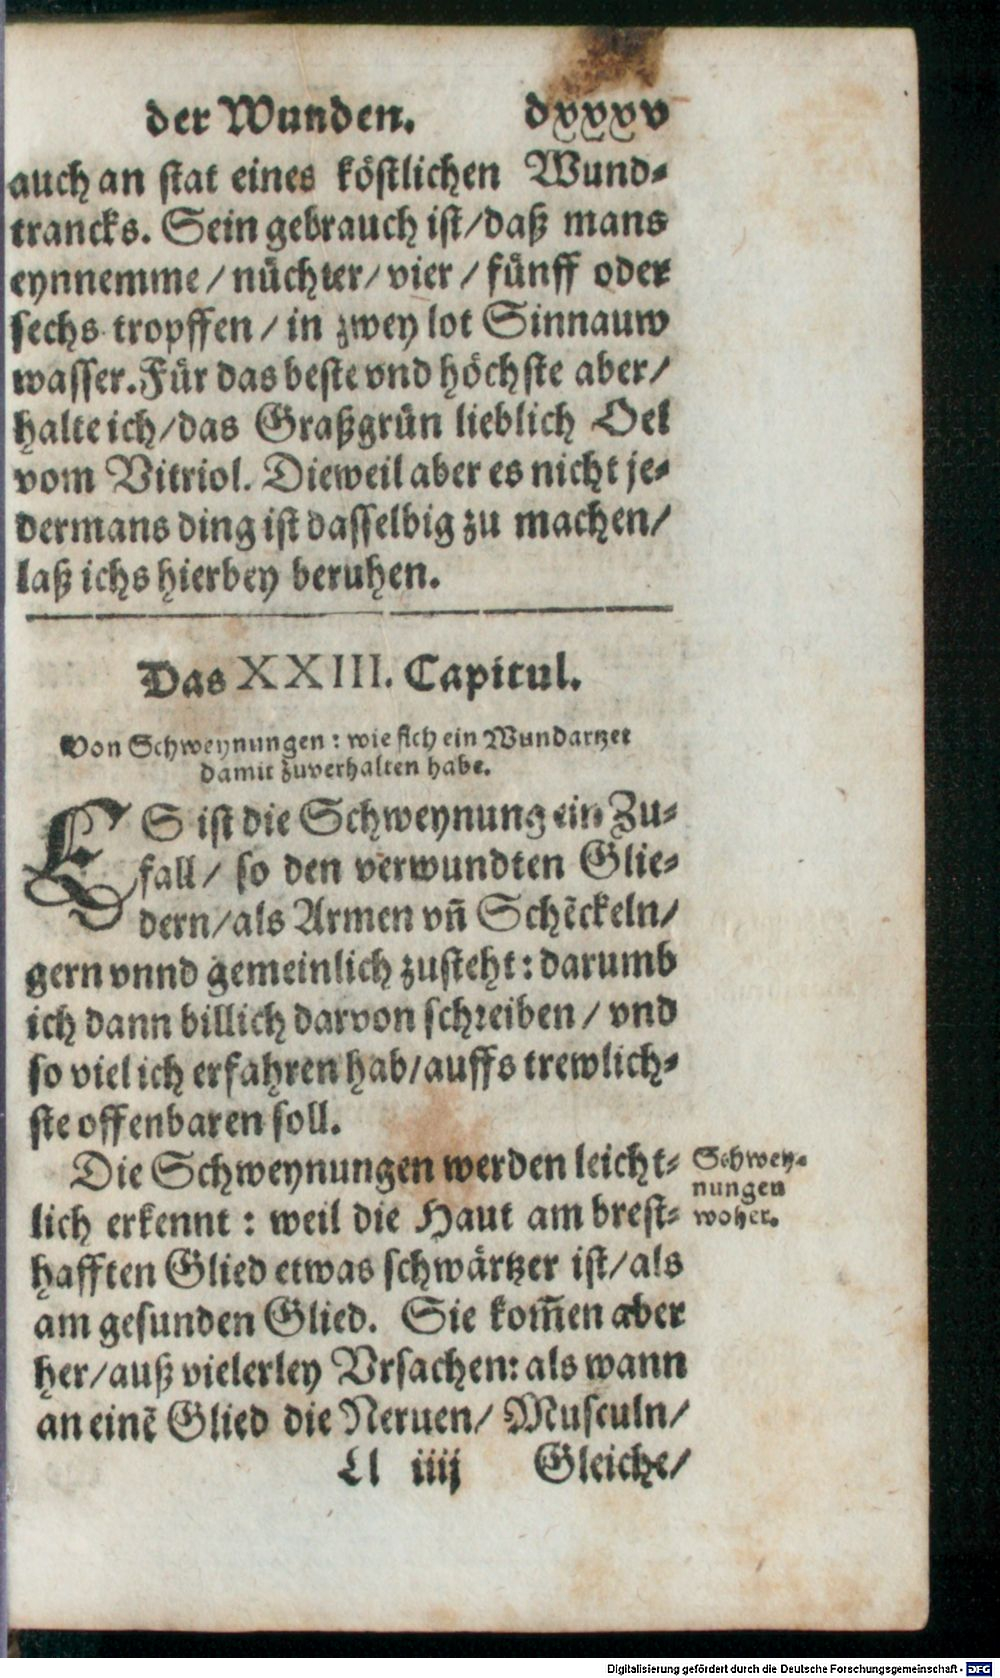 der Wunden. dxxxv
auch an stat eines köstlichen Wund-
trancks. Sein gebrauch ist/daß mans
eynnemme/nüchter/vier/fünff oder
sechs tropffen/in zwey lot Sinnauw
wasser. Für das beste vnd höchste aber/
halte ich/das Graßgrün lieblich Oel
vom Vitriol. Dieweil aber es nicht je-
dermans ding ist dasselbig zu machen/
laß ichs hierbey beruhen.
Das XXIII. Capitul.
Von Schweynungen: wie sich ein Wundartzet
damit zuverhalten habe.
ES ist die Schweynung ein Zu-
fall/ so den verwundten Glie-
dern/als Armen vñ Schẽckeln/
gern vnnd gemeinlich zusteht: darumb
ich dann billich darvon schreiben/ vnd
so viel ich erfahren hab/auffs trewlich-
ste offenbaren soll.
Die Schweynungen werden leicht-
lich erkennt: weil die Haut am brest-
hafften Glied etwas schwärtzer ist/als
am gesunden Glied. Sie kom̃en aber
her/auß vielerley Vrsachen: als wann
an einẽ Glied die Neruen/ Musculn/
Ll iiij Gleiche/
Schwey-
nungen
woher.
Digitalisierung gefördert durch die Deutsche Forschungsgemeinschaft - DFG